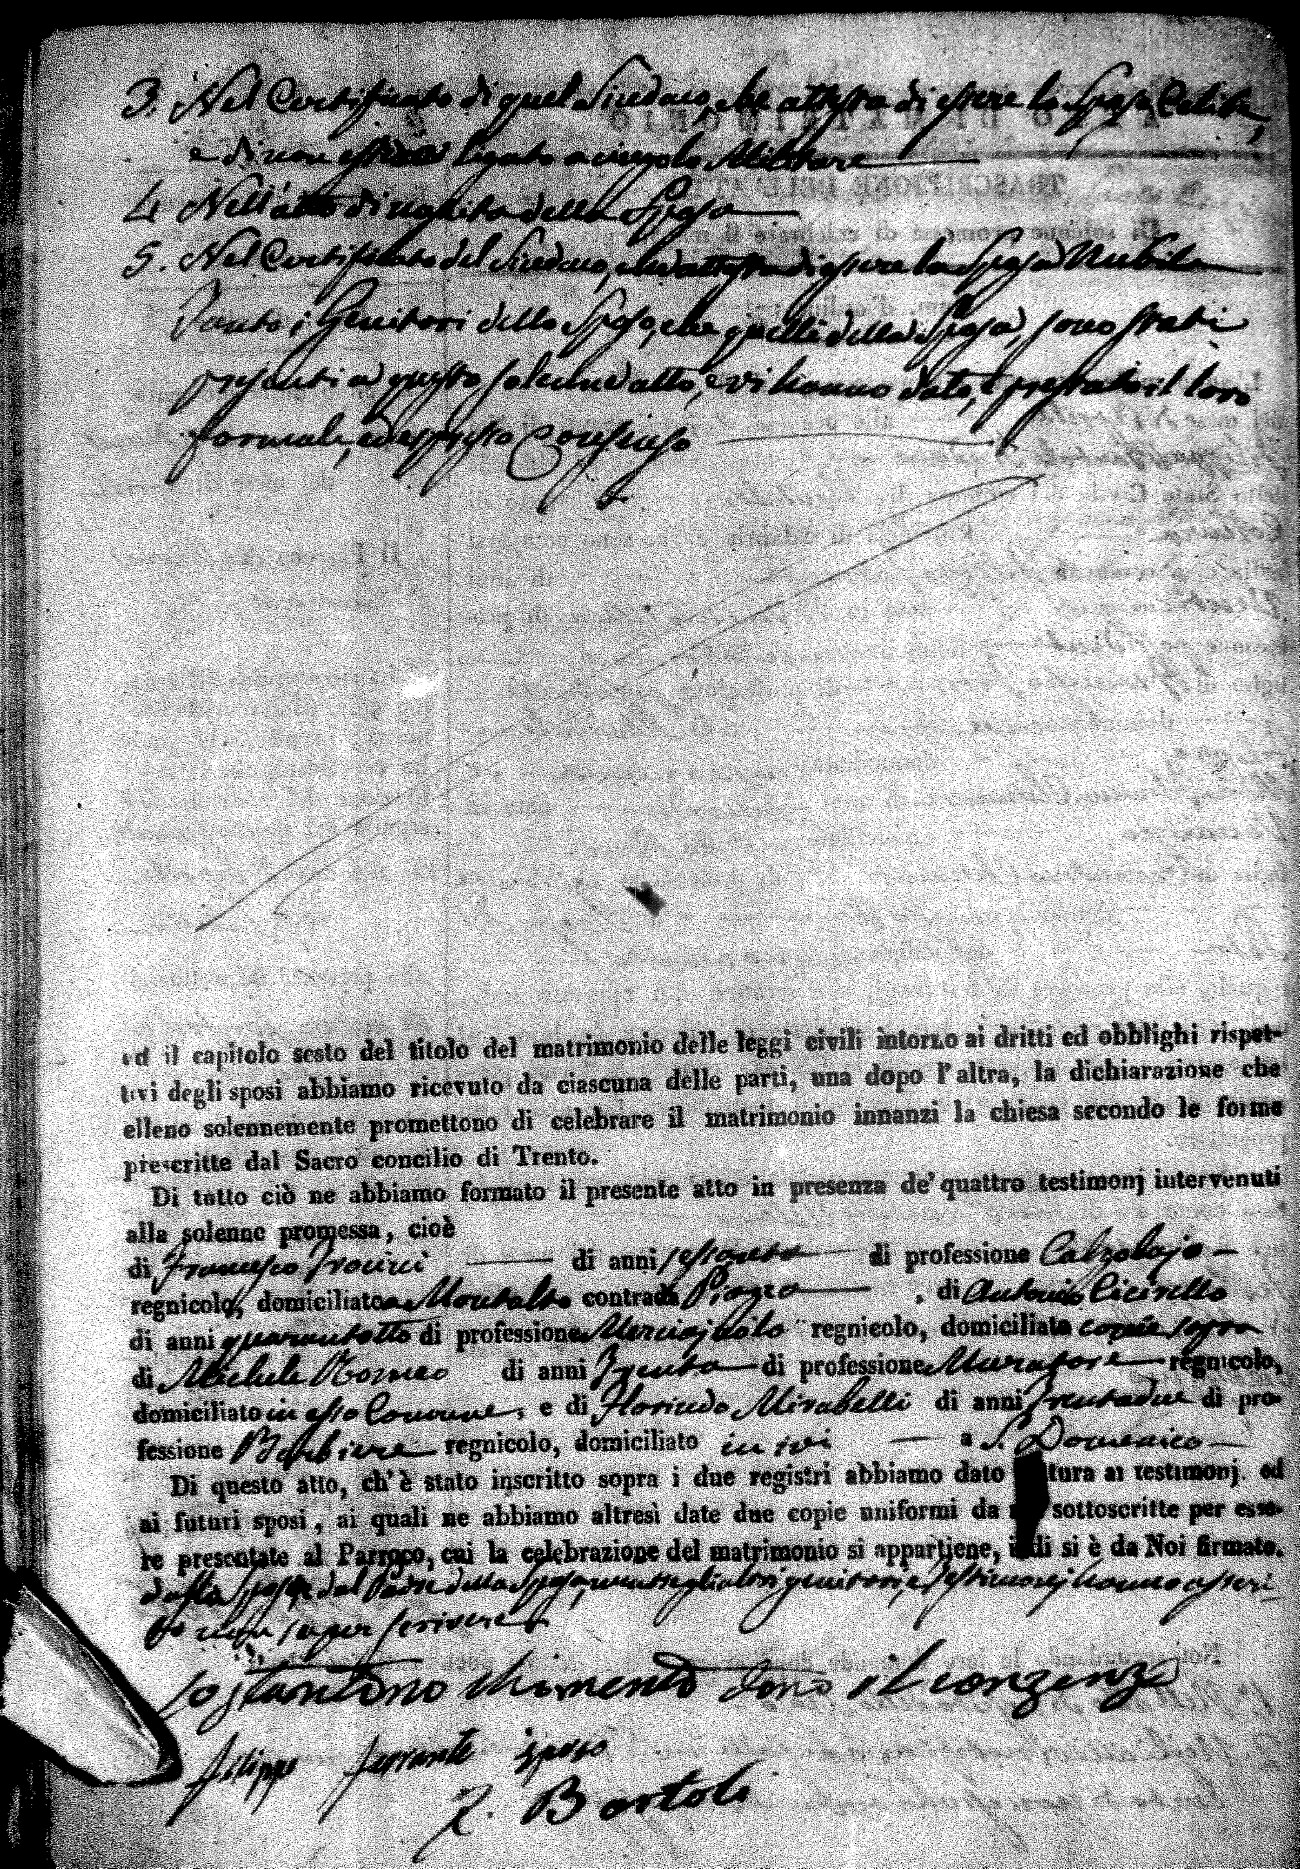 3. Nel Certificato di quel Sindaco, che attesta di essere lo Sposo Celibe,
e di non essere ligato a cingolo Militare
4. Nell'atto di nascita della Sposa
5. Nel Certificato del Sindaco, che attesta di essere la Sposa Nubile
Tanto i Genitori dello Sposo, che quelli della Sposa, sono stati
presenti a questo solenne atto, e vi hanno dato, e prestato il loro
formale, ed espresso Consenso
ed il capitolo sesto del titolo del matrimonio delle leggi civili intorno ai dritti ed obblighi rispet-
tivi degli sposi abbiamo ricevuto da ciascuna delle parti, una dopo l'altra, la dichiarazione che
elleno solennemente promettono di celebrare il matrimonio innanzi la chiesa secondo le forme
prescritte dal Sacro concilio di Trento.
Di tutto ciò ne abbiamo formato il presente atto in presenza de' quattro testimonj intervenuti
alla solenne promessa, cioè
di Francesco di anni sessanta di professione Calzolajo
regnicolo, domiciliato a Montalto contrada Piazza, di Antonio Cicirello
di anni quarantotto di professione regnicolo, domiciliato come sopra
di Michele Romeo di anni Trenta di professione Muratore regnicolo,
domiciliato in esso Comune, e di Florindo Mirabelli di anni Trentadue di pro-
fessione Barbiere regnicolo, domiciliato in ivi a S. Domenico
Di questo atto, ch'è stato inscritto sopra i due registri abbiamo dato tura ai testimonj, ed
ai futuri sposi, ai quali ne abbiamo altresì date due copie uniformi da sottoscritte per esse-
re presentate al Parroco, cui la celebrazione del matrimonio si appartiene, indi si è da Noi firmato.
dallo Sposo, e dal Padre della Sposa, mentre gli altri genitori, e Testimonj hanno asseri
to non saper scrivere
Io Santo Chimento dono il conzenzo
filippo ferrante sposo
Bartoli